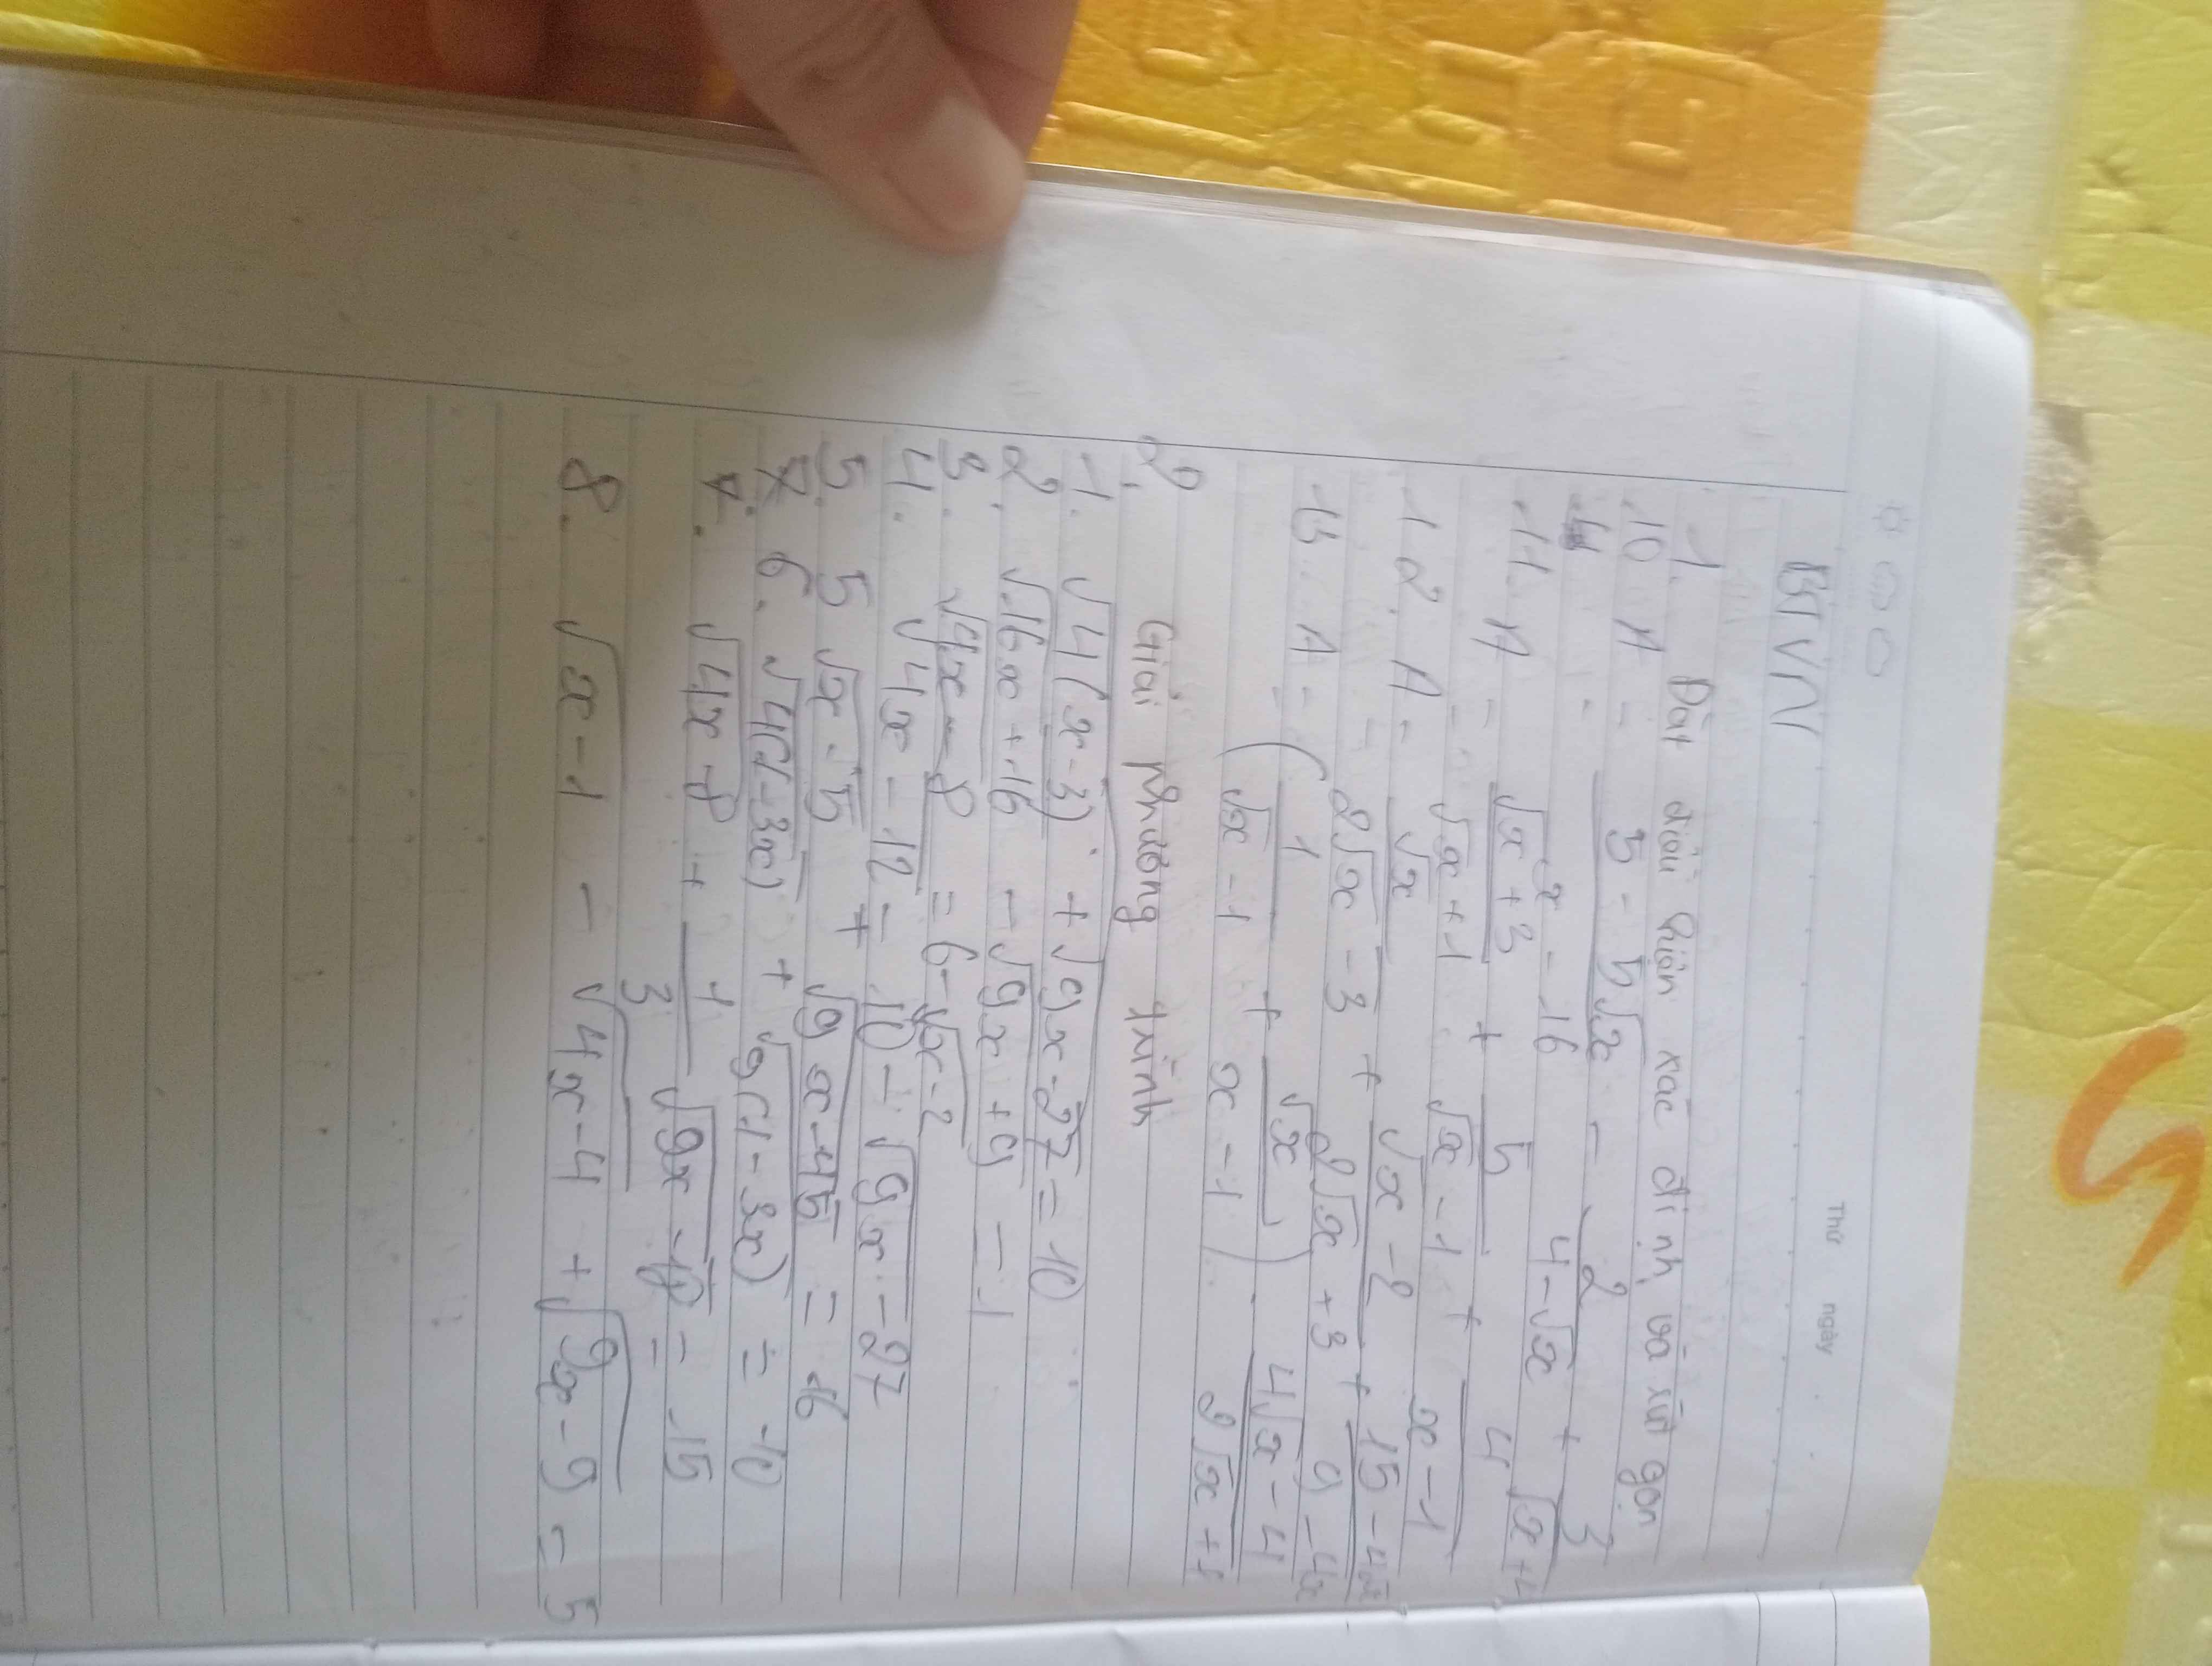 Thứ ngày
BTVN
1. Đặt điều kiện xác định và rút gọn
10 A = (3 - 5√x)/(x - 16) - 2/(4 - √x) + 3/(√x + 4)
11. A = (√x + 3)/(√x + 1) + 5/(√x - 1) + 4/(x - 1)
12. A = √x/(2√x - 3) + (√x - 2)/(2√x + 3) + (15 - 4√x)/(9 - 4x)
13. A = (1/(√x - 1) + √x/(x - 1)) . (4√x - 4)/(2√x + 1)
2. Giải phương trình
1. √4(x - 3) + √9x - 27 = 10
2. √16x + 16 - √9x + 9 = 1
3. √4x - 8 = 6 - √x - 2
4. √4x - 12 = 10 - √9x - 27
5. 5√x - 5 + √9x - 45 = 16
6. √4(1 - 3x) + √9(1 - 3x) = 10
7. √4x - 8 + 1/3 √9x - 18 = 15
8. √x - 1 - √4x - 4 + √9x - 9 = 5